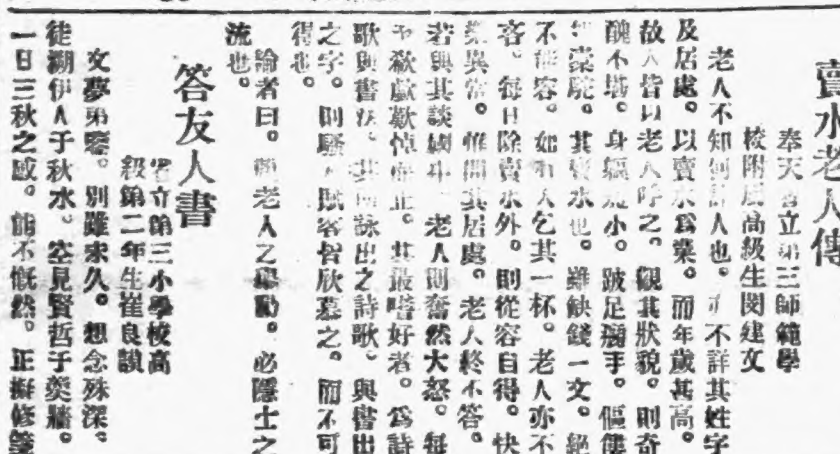 賣水老人傳
奉天省立第三師範學
校附屬高級生閔建文
老人不知何許人也。亦不詳其姓字
及居處。以賣水爲業。而年歲甚高。
故人皆以老人呼之。觀其狀貌。則奇
醜不堪。身軀短小。跛足彎手。傴僂
橐駝。其賣水也。雖缺錢一文。絕
不能容。如有人乞其一杯。老人亦不
吝。每日除賣水外。則從容自得。快
樂異常。惟問其居處。老人終不答。
若與其談國事。老人則奮然大怒。每
歔欷悼而止。其最嗜好者。爲詩
歌與書法。其所詠出之詩歌、與書出
之字。則騷人賦客皆欣慕之。而不可
得也。
論者曰。賣老人之舉動。必隱士之
流也。
答友人書
省立第三小學校高
級第二年生崔良謨
文夢弟鑒。別雖未久。想念殊深。
徒溯伊人于秋水。空見賢哲于羹牆。
一日三秋之感。能不慨然。正擬修箋